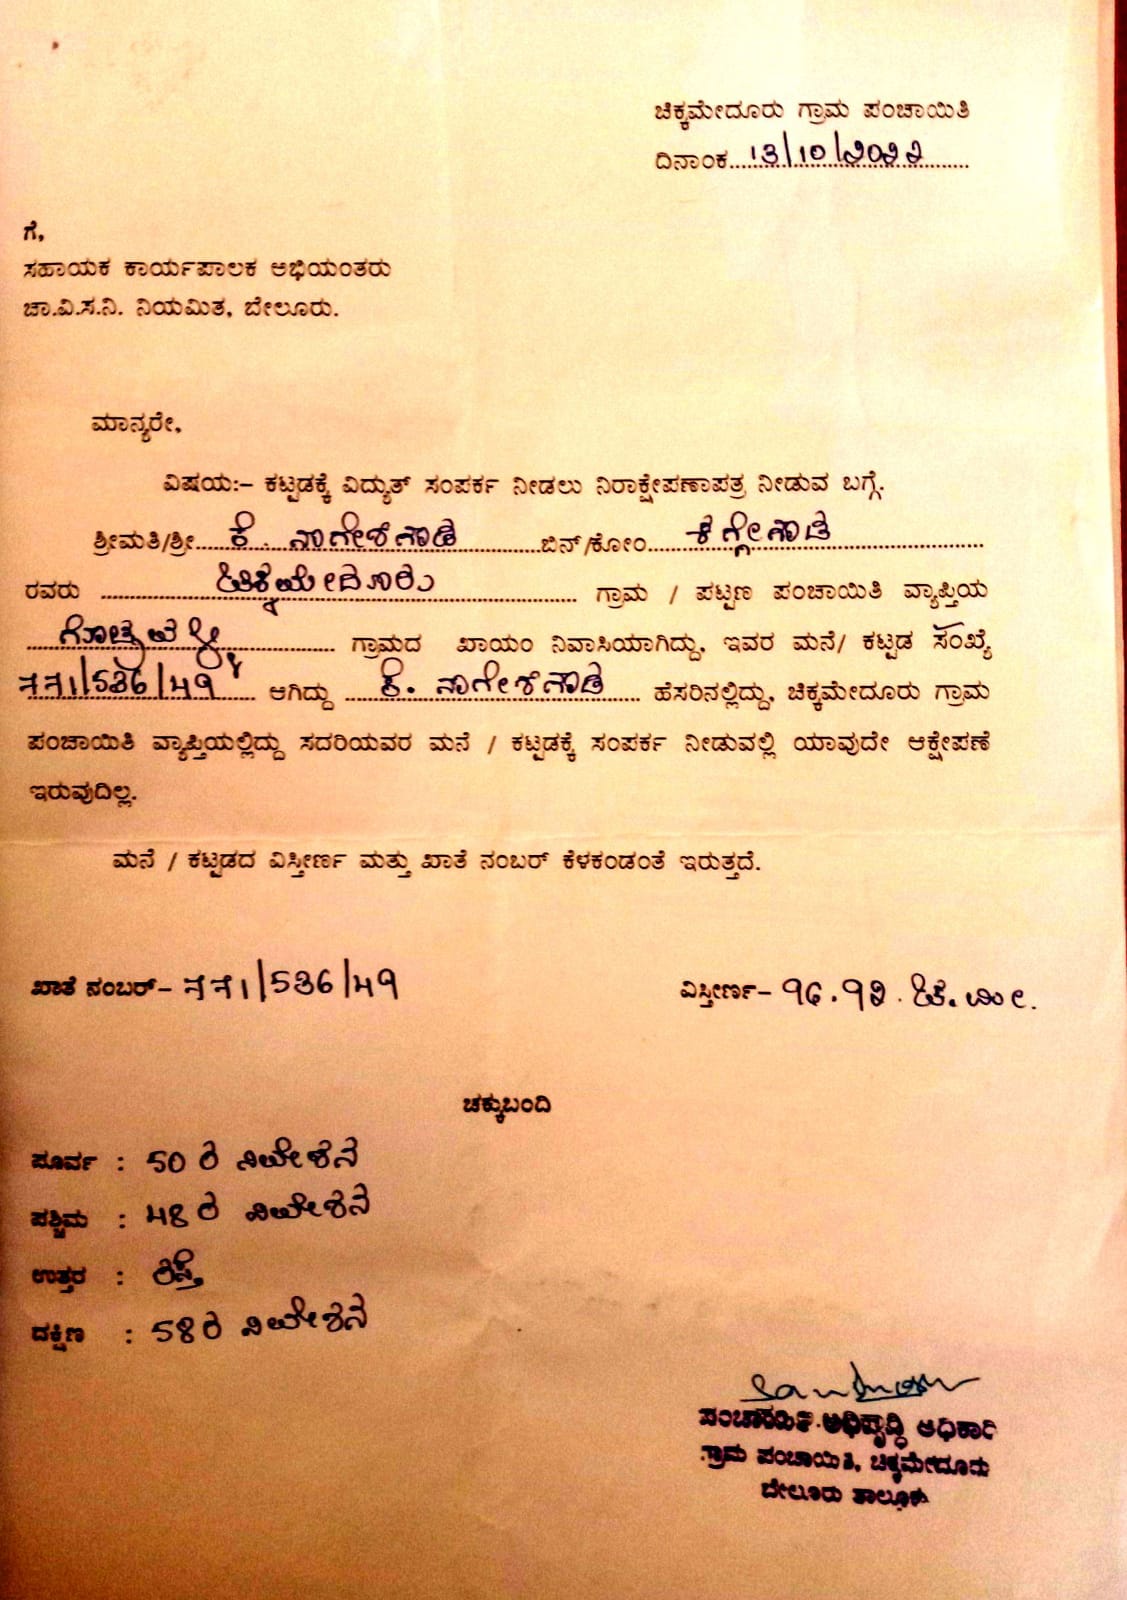 ಚಿಕ್ಕಮೇದೂರು ಗ್ರಾಮ ಪಂಚಾಯಿತಿ
ದಿನಾಂಕ 13/10/2022
ಗೆ,
ಸಹಾಯಕ ಕಾರ್ಯಪಾಲಕ ಅಭಿಯಂತರು
ಚಾ.ವಿ.ಸ.ನಿ. ನಿಯಮಿತ, ಬೇಲೂರು.
ಮಾನ್ಯರೇ,
ವಿಷಯ:- ಕಟ್ಟಡಕ್ಕೆ ವಿದ್ಯುತ್ ಸಂಪರ್ಕ ನೀಡಲು ನಿರಾಕ್ಷೇಪಣಾಪತ್ರ ನೀಡುವ ಬಗ್ಗೆ.
ಶ್ರೀಮತಿ/ಶ್ರೀ ಕೆ. ನಾಗೇಶಗೌಡ ಬಿನ್/ಕೋಂ
ರವರು ಚಿಕ್ಕಮೇದೂರು ಗ್ರಾಮ / ಪಟ್ಟಣ ಪಂಚಾಯಿತಿ ವ್ಯಾಪ್ತಿಯ
ಗ್ರಾಮದ ಖಾಯಂ ನಿವಾಸಿಯಾಗಿದ್ದು, ಇವರ ಮನೆ/ ಕಟ್ಟಡ ಸಂಖ್ಯೆ
೯೯1/536/49 ಆಗಿದ್ದು ಕೆ. ನಾಗೇಶಗೌಡ ಹೆಸರಿನಲ್ಲಿದ್ದು, ಚಿಕ್ಕಮೇದೂರು ಗ್ರಾಮ
ಪಂಚಾಯಿತಿ ವ್ಯಾಪ್ತಿಯಲ್ಲಿದ್ದು ಸದರಿಯವರ ಮನೆ / ಕಟ್ಟಡಕ್ಕೆ ಸಂಪರ್ಕ ನೀಡುವಲ್ಲಿ ಯಾವುದೇ ಆಕ್ಷೇಪಣೆ
ಇರುವುದಿಲ್ಲ.
ಮನೆ / ಕಟ್ಟಡದ ವಿಸ್ತೀರ್ಣ ಮತ್ತು ಖಾತೆ ನಂಬರ್ ಕೆಳಕಂಡಂತೆ ಇರುತ್ತದೆ.
ಖಾತೆ ನಂಬರ್- ೯೯1/536/49
ವಿಸ್ತೀರ್ಣ- 96.92. ಚ.ಮೀ.
ಚಕ್ಕುಬಂದಿ
ಪೂರ್ವ : 50 ರ ನಿವೇಶನ
ಪಶ್ಚಿಮ : 48 ರ ನಿವೇಶನ
ಉತ್ತರ : ರಸ್ತೆ
ದಕ್ಷಿಣ : 58 ರ ನಿವೇಶನ
ಪಂಚಾಯಿತಿ ಅಭಿವೃದ್ಧಿ ಅಧಿಕಾರಿ
ಗ್ರಾಮ ಪಂಚಾಯಿತಿ, ಚಿಕ್ಕಮೇದೂರು
ಬೇಲೂರು ತಾಲ್ಲೂಕು